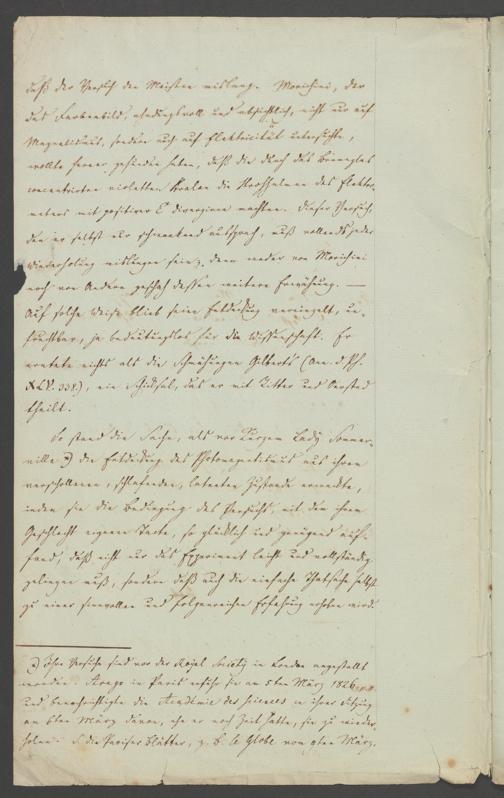 daß der Versuch den Meisten mislang. Morichini, der
das Farbenbild, ahndungsvoll und absichtlich, nicht nur auf
Magnetismus, sondern auch auf Elektricität untersuchte,
wollte ferner gefunden haben, daß die durch das Brennglas
concentrirten violetten Stralen die Strohhalmen des Elektro-
meters mit positiver E divergiren machten. Dieser Versuch,
den er selbst nur schwankend aussprach, muß vollends jeder
Wiederholung mislungen sein, denn weder von Morichini
noch von Andern geschah dessen weitere Erwähnung. —
Auf solche Weise blieb seine Entdeckung vereinzelt, un-
fruchtbar, ja bedeutungslos für die Wissenschaft. Er
erntete nichts als die Schmähungen Gilberts (Ann. d. Ph.
XLV. 338.), ein Schicksal, das er mit Ritter und Oersted
theilt.
So stand die Sache, als vor Kurzem Lady Sommer-
ville *) die Entdeckung des Photomagnetismus aus ihrem
verschollenen, schlafenden, latenten Zustande erweckte,
indem sie die Bedingung des Versuchs, mit dem ihrem
Geschlecht eigenen Tacte, so glücklich und genügend auf-
fand, daß nicht nur das Experiment leicht und vollständig
gelingen muß, sondern daß auch die einfache Thatsache selbst
zu einer sinnvollen und folgenreichen Erfahrung erhoben wird.
*) Ihre Versuche sind vor der Royal Society in London angestellt
worden. Arago in Paris erfuhr sie am 5ten März 1826
und benachrichtigte die Académie des sciences in ihrer Sitzung
am 6ten März davon, ehe er noch Zeit hatte, sie zu wieder-
holen. S. die Pariser Blätter, z. B. le Globe vom 9ten März.